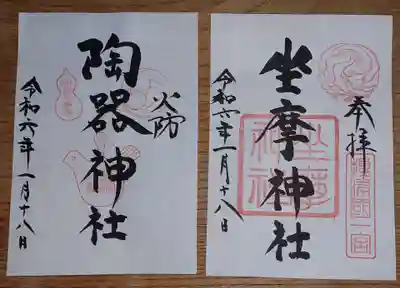 奉拝
攝津國一宮
坐摩神社
坐摩神社
令和六年一月十八日
火防
陶器神社
令和六年一月十八日